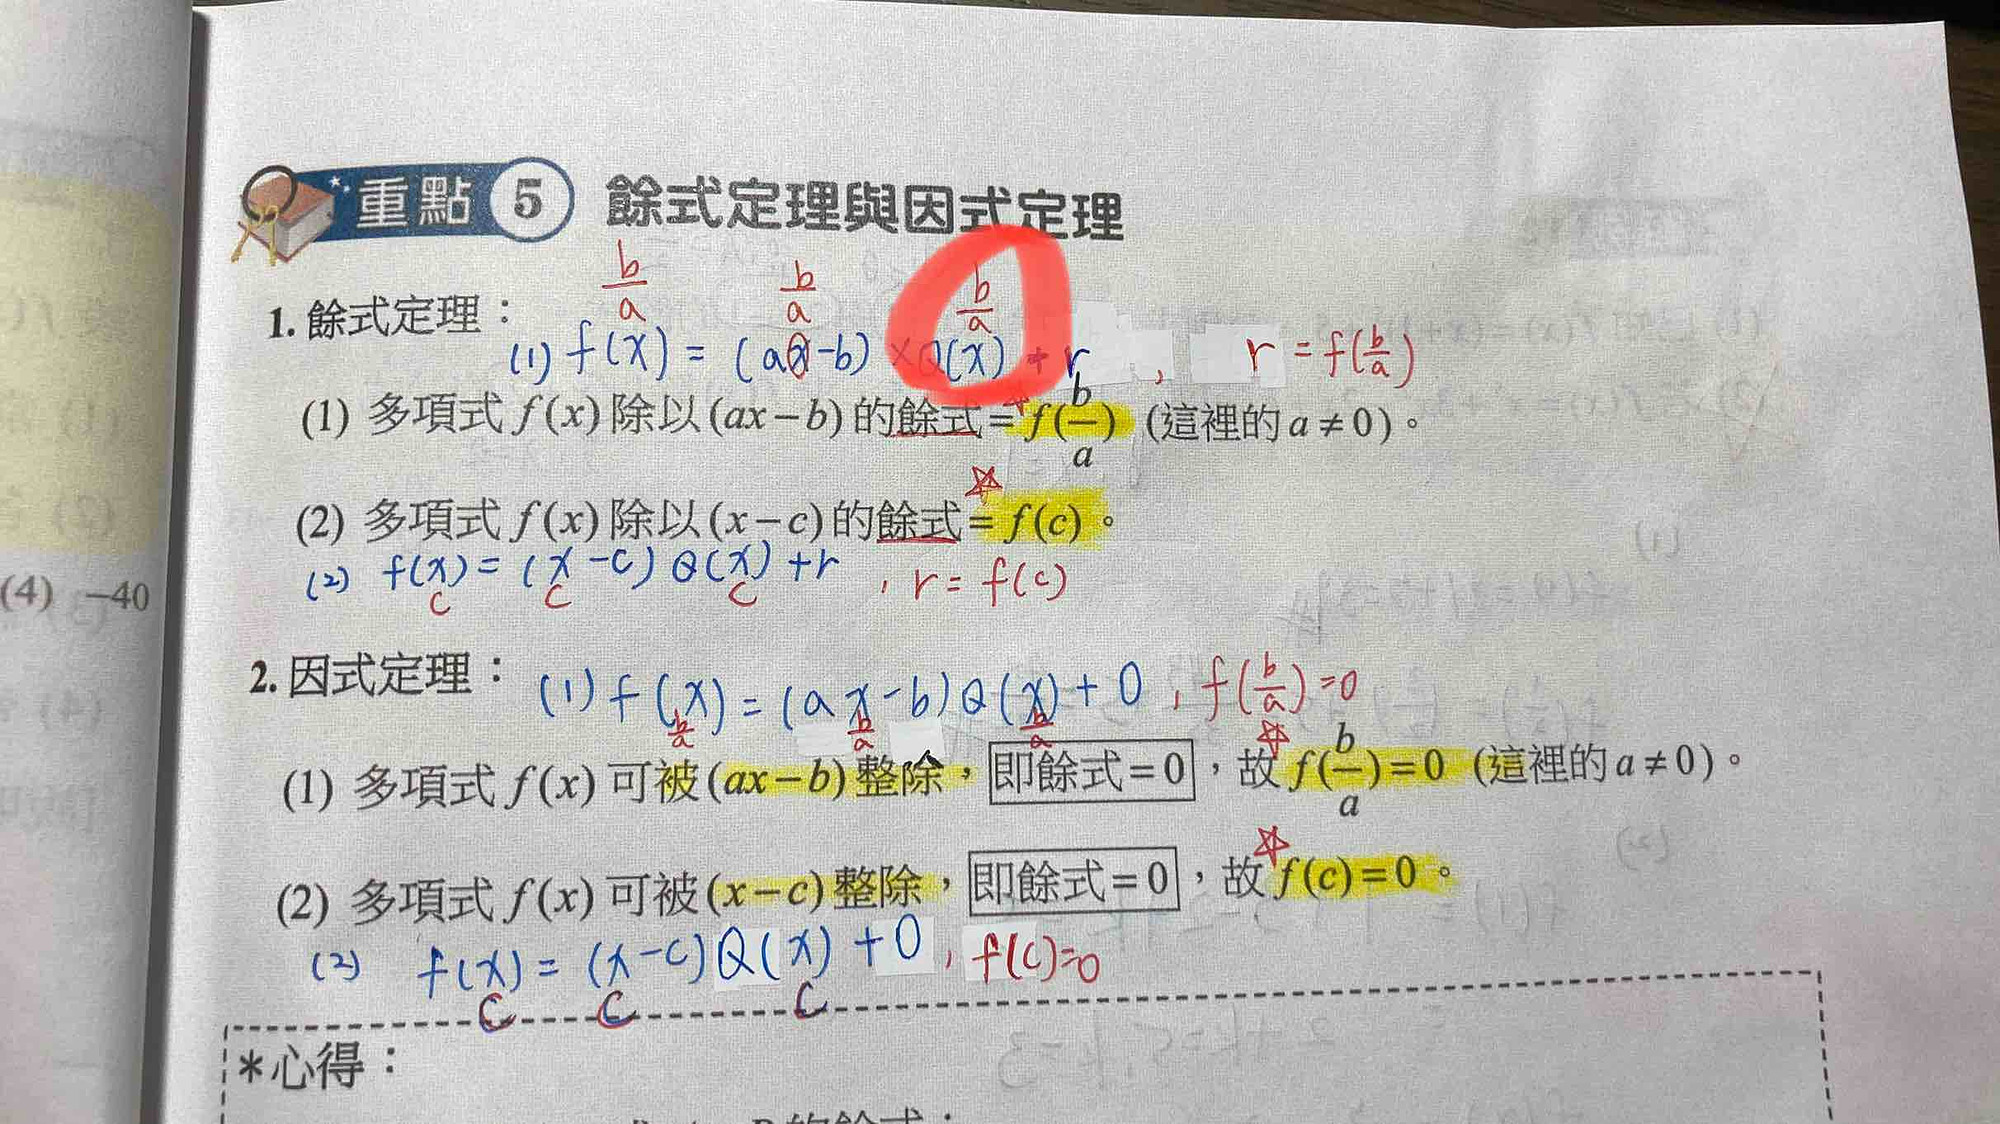 重點 5 餘式定理與因式定理
b/a b/a b/a
1. 餘式定理：
(1) f(x) = (ax-b) × Q(x) + r , r = f(b/a)
(1) 多項式 f(x) 除以 (ax−b) 的餘式= f(b/a) (這裡的 a≠0)。
(2) 多項式 f(x) 除以 (x−c) 的餘式= f(c)。
(2) f(x) = (x-c) Q(x) + r , r = f(c)
c c c
2. 因式定理： (1) f(x) = (ax-b) Q(x) + 0 , f(b/a) = 0
b/a b/a b/a
(1) 多項式 f(x) 可被 (ax−b) 整除，即餘式=0，故 f(b/a)=0 (這裡的 a≠0)。
(2) 多項式 f(x) 可被 (x−c) 整除，即餘式=0，故 f(c)=0。
(2) f(x) = (x-c) Q(x) + 0 , f(c)=0
c c c
*心得：
的餘式：
(4) −40